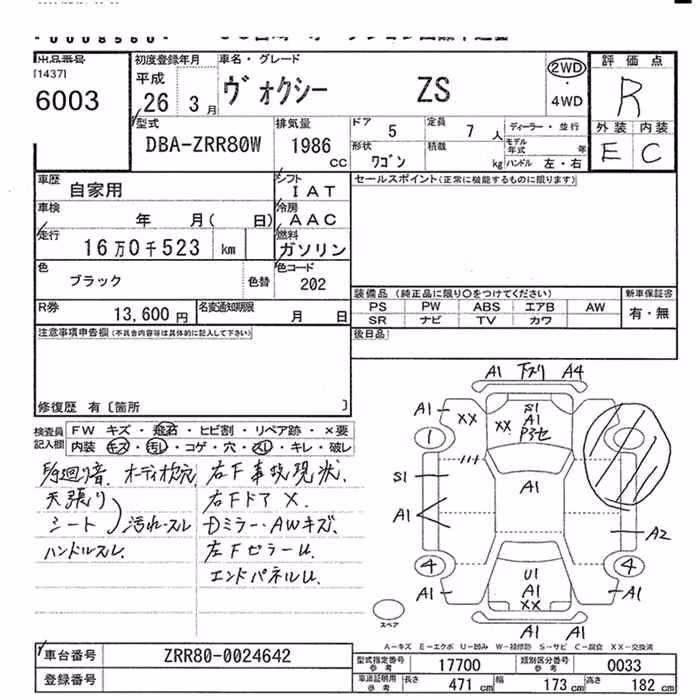 出品番号
[1437]
6003
初度登録年月
平成
26 年 3 月
車名・グレード
ヴォクシー ZS
2WD
・
4WD
評価点
R
外装 内装
E C
型式
DBA-ZRR80W
排気量
1986 CC
ドア 5
定員 7 人
形状 ワゴン
積載 kg
ディーラー・並行
モデル年式 年
ハンドル 左・右
車歴 自家用
シフト IAT
車検 年 月( 日)
冷房 AAC
走行 16万0千523 km
燃料 ガソリン
色 ブラック 色替
色コード 202
R券 13,600 円
名変通知期限 月 日
セールスポイント(正常に機能するものに限ります)
装備品 (純正品に限り○をつけてください)
新車保証書
PS PW ABS エアB AW
SR ナビ TV カワ
有・無
後日品
注意事項申告欄(不具合内容等は具体的に記入して下さい)
修復歴 有〔箇所 〕
検査員記入欄
FW キズ・飛石・ヒビ割・リペア跡・×要
内装 キズ・汚レ・コゲ・穴・スレ・キレ・破レ
オーディオ欠
天張り
シート
汚れ・スレ
ハンドルスレ
右F事故現状.
右Fドア X.
Dミラー・AWキズ.
左FピラーU.
エンドパネルU.
A1 下スリ A4
A1 XX XX S1 A1
1
S1
A1
A1
A2
4 4
A1 U1 A1 XX A1
A1 A1
スペア
A－キズ E－エクボ U－凹み W－補修跡 S－サビ C－腐食 XX－交換済
車台番号 ZRR80-0024642
登録番号
型式指定番号 参考 17700
類別区分番号 参考 0033
車庫証明用 参考 長さ 471 cm 幅 173 cm 高さ 182 cm